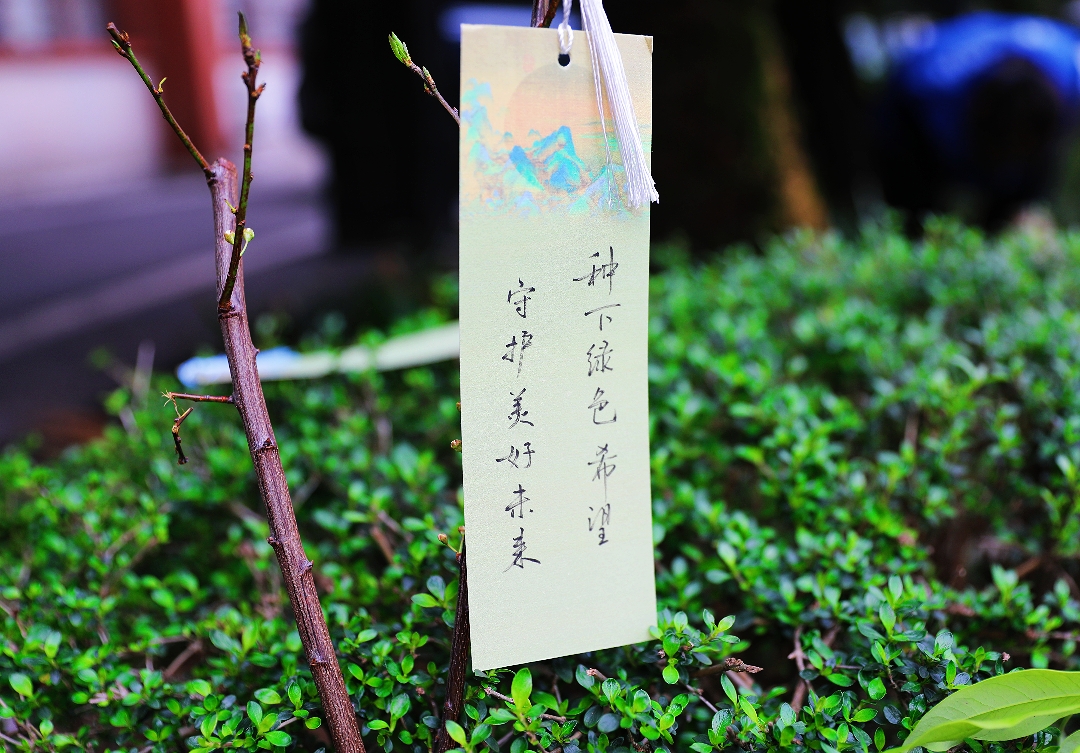 种下绿色希望
守护美好未来